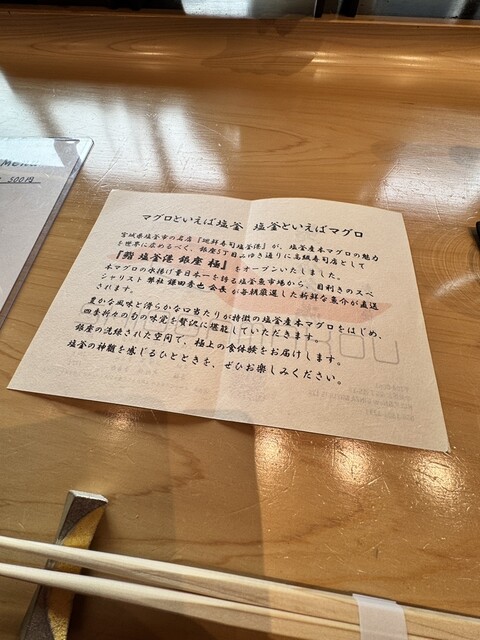 Menu
500円
マグロといえば塩釜　塩釜といえばマグロ
宮城県塩釜市の名店『廻鮮寿司塩釜港』が、塩釜産本マグロの魅力
を世界に広めるべく、銀座5丁目みゆき通りに高級寿司店として
『鮨 塩釜港 銀座 極』をオープンいたしました。
本マグロの水揚げ量日本一を誇る塩釜魚市場から、目利きのスペ
シャリスト 弊社 鎌田秀也 会長が毎朝厳選した新鮮な魚介が直送
されます。
豊かな風味と滑らかな口当たりが特徴の塩釜産本マグロをはじめ、
四季折々のもの味覚を贅沢に堪能していただきます。
銀座の洗練された空間で、極上の食体験をお届けします。
塩釜の神髄を感じるひとときを、ぜひお楽しみください。